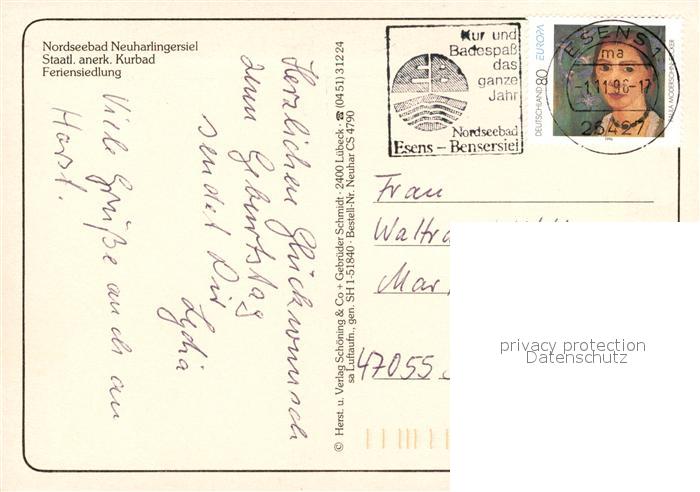 Nordseebad Neuharlingersiel
Staatl. anerk. Kurbad
Feriensiedlung
Herzlichen Glückwunsch
zum Geburtstag
sendet Dir
Lydia
Viele Grüße auch an
Horst.
© Herst. u. Verlag Schöning & Co + Gebrüder Schmidt · 2400 Lübeck · ☎ (0451) 31224
sa Luftaufn., gen. SH 1-51840 · Bestell-Nr. Neuhar CS 4790
Kur und
Badespaß
das
ganze
Jahr
Nordseebad
Esens – Bensersiel
DEUTSCHLAND 80 EUROPA
ESENS 1
ma
-1.11.96-17
26427
Frau
Waltra
Mar
47055
privacy protection
Datenschutz